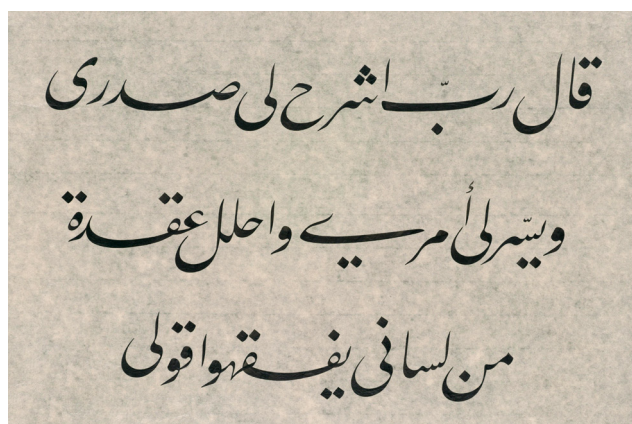 قال ربّ اشرح لی صدری
ويسّر لی أمری واحلل عقدة
من لسانی يفقهوا قولی